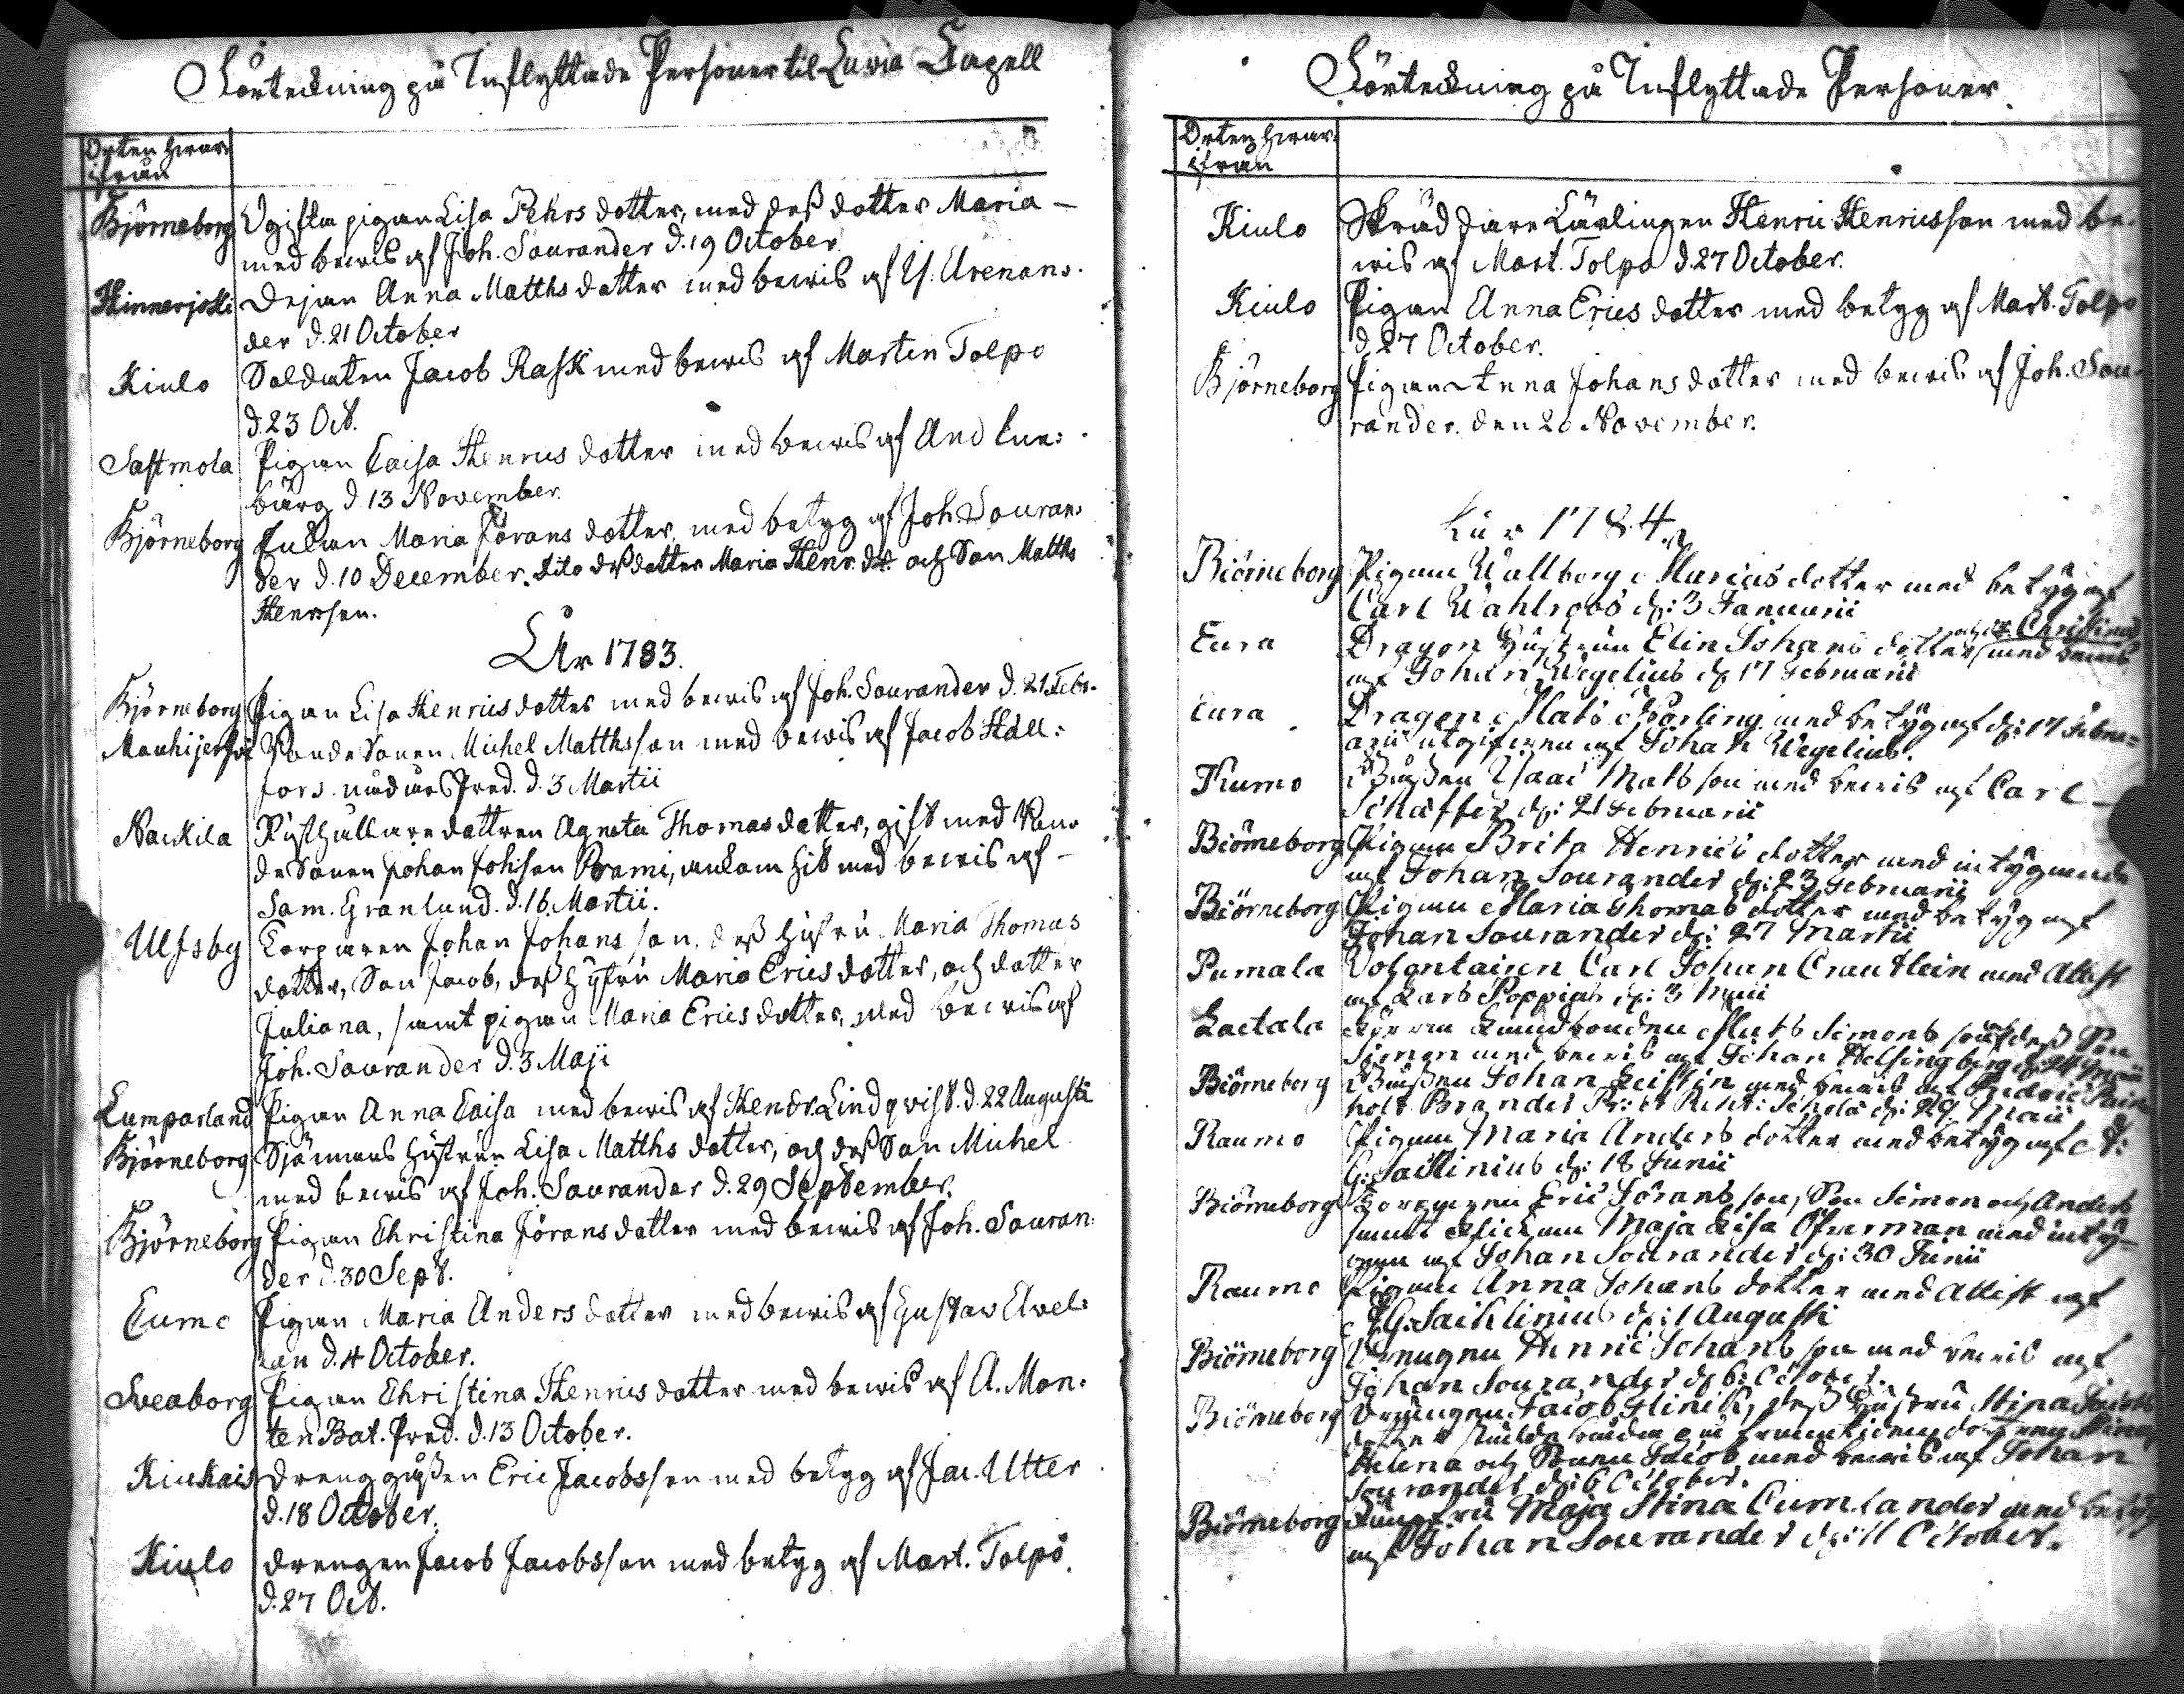 Förteckning på Inflyttade Personer til Luvia Capell
Orten hwar
ifrån
Björneborg Ogifta pigan Lisa Pehrs dotter, med dess dotter Maria –
med bewis af Joh. Sourander d. 19 October
Hinnerjoki Dejan Anna Matths dotter med bewis af Is. Arenan:
der d. 21 October
Kiulo Soldaten Jacob Rask med bewis af Marten Tolpo
d. 23 Oct.
Sastmola Pigan Caisa Henrics dotter med bewis af And Ene:
bärg d 13 November.
Björneborg Enkan Maria Jörans dotter, med betyg af Joh Souran:
der d. 10 December. dito dess dotter Maria Henr. dt. och Son Matths
Henrsson.
År 1783.
Björneborg Pigan Lisa Henricsdotter med bewis af Joh. Sourander d. 21 Febr.
Mouhijerfvi Bonde Sonen Michel Matthsson med bewis af Jacob Häll:
fors nådårs Pred. d. 3 Martii
Nackila Rusthållare dottren Agneta Thomasdotter, gift med Bon:
de Sonen Johan Johsson Prami, ankom hit med bewis af –
Sam. Granlund. d. 16 Martii.
Ulfsby Torparen Johan Johansson, dess hustru Maria Thomas
dotter, Son Jacob, dess hustru Maria Erics dotter, och dotter
Juliana, samt pigan Maria Erics dotter, med bewis af
Joh. Sourander d. 3 Maji
Lumparland Pigan Anna Caisa med bewis af Hendr. Lindqvist. d. 22 Augusti
Björneborg Sjömans hustrun Lisa Matths dotter, och dess Son Michel
med bewis af Joh. Sourander d. 29 September.
Björneborg Pigan Christina Jörans dotter med bewis af Joh. Souran:
der d. 30 Sept.
Cumo Pigan Maria Anders dotter med bewis af Gustav Avel:
lan d. 4 October.
Sveaborg Pigan Christina Henrics dotter med bewis af A. Mon:
ten Bat. Pred. d. 13 October.
Kiukais Dreng gåssen Eric Jacobsson med betyg af Jac. Utter
d. 18 October.
Kiulo Drengen Jacob Jacobsson med betyg af Mart. Tolpo.
d. 27 Oct.
Förteckning på Inflyttade Personer.
Orten hwar:
ifrån
Kiulo Skräddare Lärlingen Henric Henricsson med be:
wis af Mart. Tolpo d. 27 October.
Kiulo Pigan Anna Erics dotter med betyg af Mart. Tolpo
d. 27 October.
Björneborg Pigan Anna Johans dotter med bewis af Joh. Sou:
rander. den 26 November.
År 1784.
Biörneborg Pigan Wallborg Marcus dotter med betyg af
Carl Wahlroos d: 3 Januarii
och dt. Christina
Eura Dragon Hustrun Elin Johans dotter med bewis
af Johan Wegelius d. 17 Februarii
Eura Dragon Mats Spårling med betyg af d: 17 Febru=
arii utgifven af Johan Wegelius.
Kumo Gåssen Isaac Mats son med bewis af Carl
Schæffer d: 21 Februarii
Biörneborg Pigan Brita Henrics dotter med intygande
af Johan Sourander d: 23 Februarii
Biörneborg Pigan Maria Thomas dotter med betyg af
Johan Sourander d: 27 Martii
Pumala Volontairen Carl Johan Crautlein med Attest
af Lars Poppius d: 3 Maii
Laetala Matts Simons son dess Son
Simon med bewis af Johan Helsingberg d. 24 Maii
Biörneborg Gåssen Johan Leistén med bewis af Fredric Rein
hold Brander d: 29 Maii
Raumo Pigan Maria Anders dotter med betyg af
G: Saiklinius d: 18 Junii
Biörneborg Eric Jörans son, Son Simon och Anders
samt Flickan Maja Lisa Öhrman med inty-
gan af Johan Sourander d: 30 Junii
Raumo Pigan Anna Johans dotter med Attest af
G: Saiklinius d: 1 Augusti
Biörneborg Drengen Henric Johans son med bewis af
Johan Sourander d. 6: October.
Biörneborg Drengen Jacob Flinck, dess Hustru Stina Jacobs
dotter
Helena och Sonen Jacob med bewis af Johan
Sourander d: 6 October.
Biörneborg Jungfru Maja Stina Cumlander med betyg
af Johan Sourander d: 11 October.